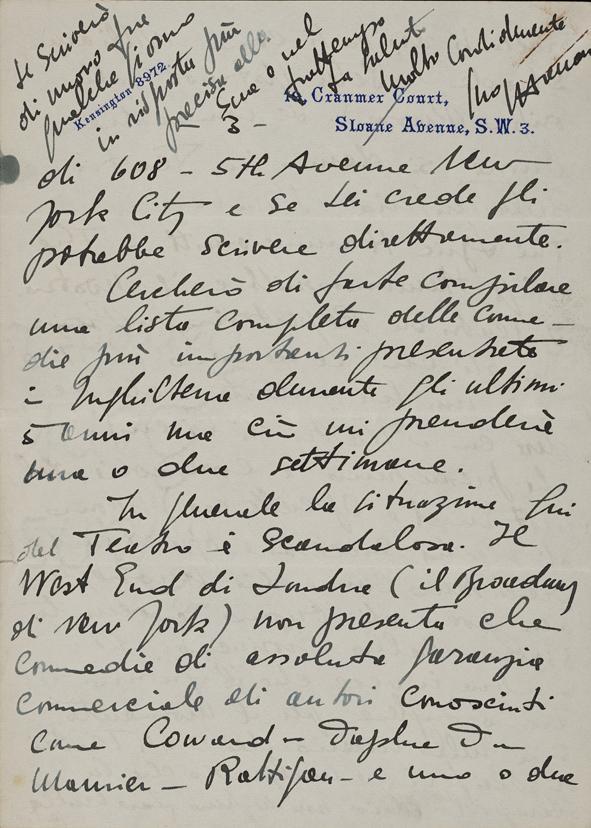 Le scriverò
di nuovo fra
qualche giorno
in risposta più
precisa alla
Sua e nel
frattempo
La saluto
molto cordialmente
Suo
Kensington 8972.
Cranmer Court,
Sloane Avenue, S.W. 3.
3 -
di 608 - 5th Avenue New
York City e se Lei crede gli
potrebbe scrivere direttamente.
Cercherò di farle compilare
una lista completa delle comme-
die più importanti presentate
in Inghilterra durante gli ultimi
5 anni ma ciò mi prenderà
una o due settimane.
In generale la situazione qui
del Teatro è scandalosa. Il
West End di Londra (il Broadway
di New York) non presenta che
commedie di assoluta garanzia
commerciale di autori conosciuti
come Coward - Daphne Du
Maurier - Rattigan - e uno o due